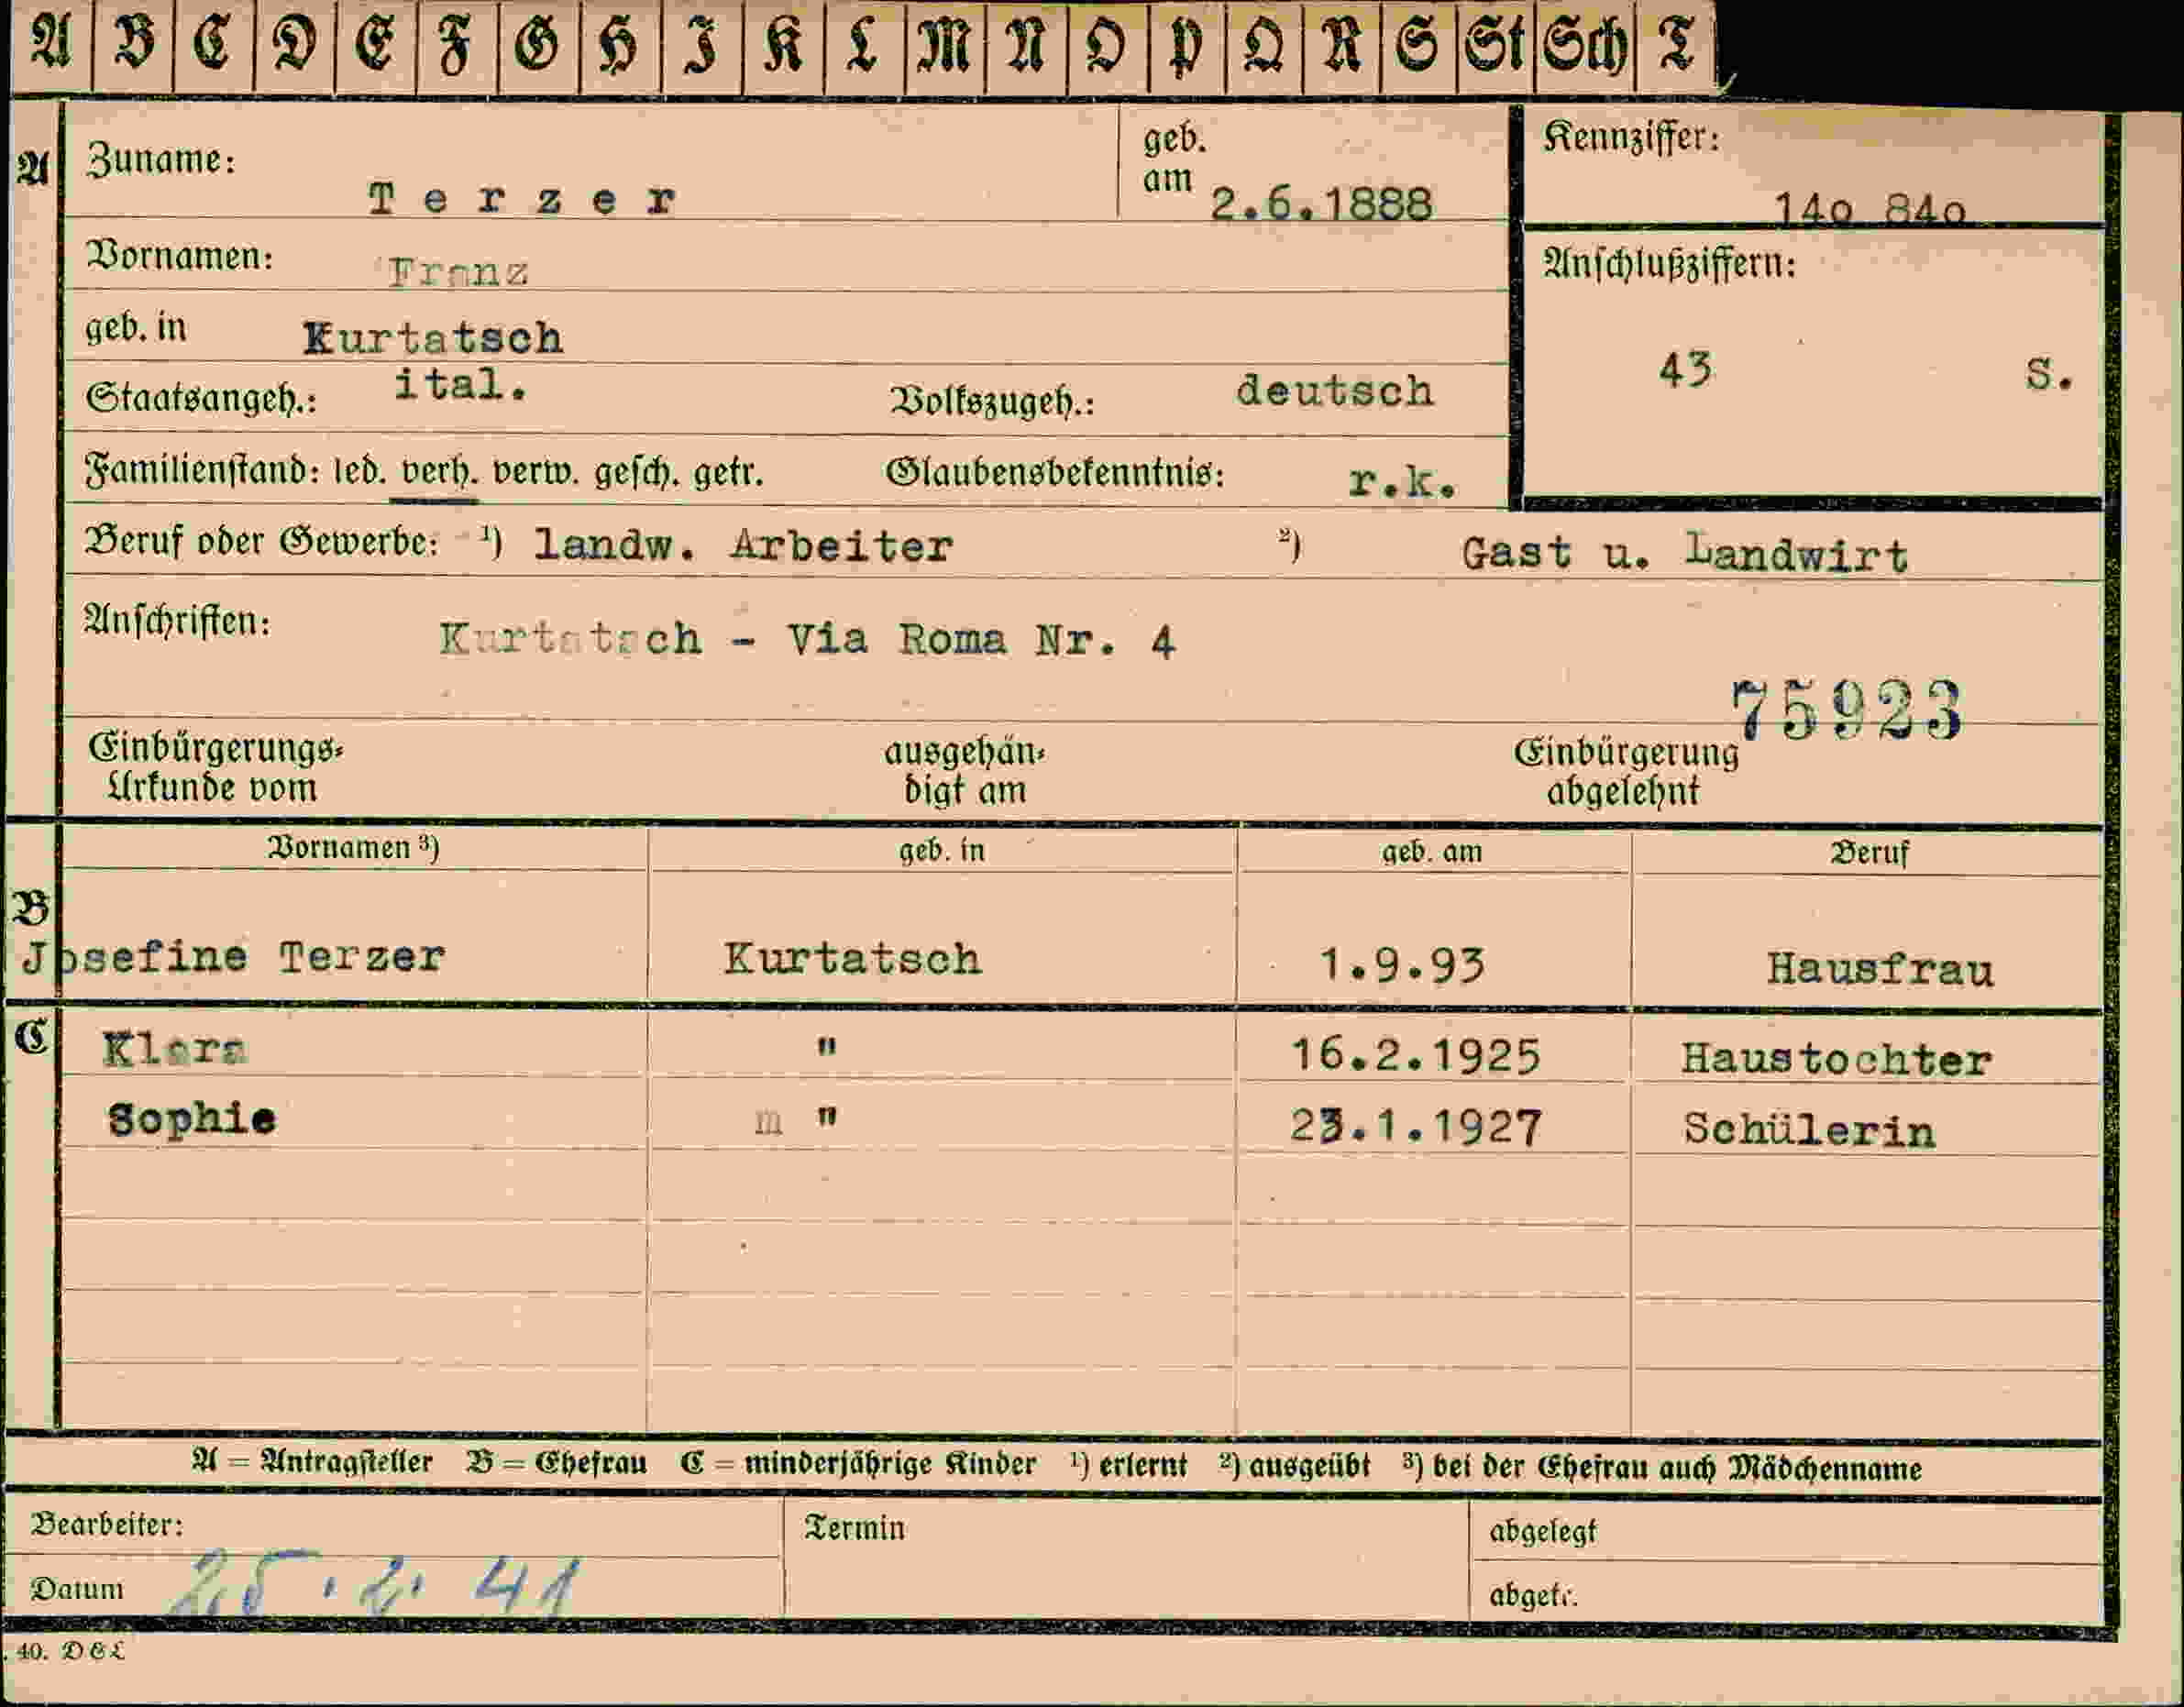 A B C D E F G H I K L M N O P Q R S St Sch T
A Zuname: Terzer geb. am 2.6.1888 Kennziffer: 14o 84o
Vornamen: Franz Anschlußziffern:
geb. in Kurtatsch 43 S.
Staatsangeh.: ital. Volkszugeh.: deutsch
Familienstand: led. verh. verw. gesch. getr. Glaubensbekenntnis: r.k.
Beruf oder Gewerbe: 1) landw. Arbeiter 2) Gast u. Landwirt
Anschriften: Kurtatsch - Via Roma Nr. 4
75923
Einbürgerungs- ausgehän- Einbürgerung
Urkunde vom digt am abgelehnt
Vornamen 3) geb. in geb. am Beruf
B
Josefine Terzer Kurtatsch 1.9.93 Hausfrau
C Klara " 16.2.1925 Haustochter
Sophie m " 23.1.1927 Schülerin
A = Antragsteller B = Ehefrau C = minderjährige Kinder 1) erlernt 2) ausgeübt 3) bei der Ehefrau auch Mädchenname
Bearbeiter: Termin abgelegt
Datum 25.2.41 abgetr.
40. D&L